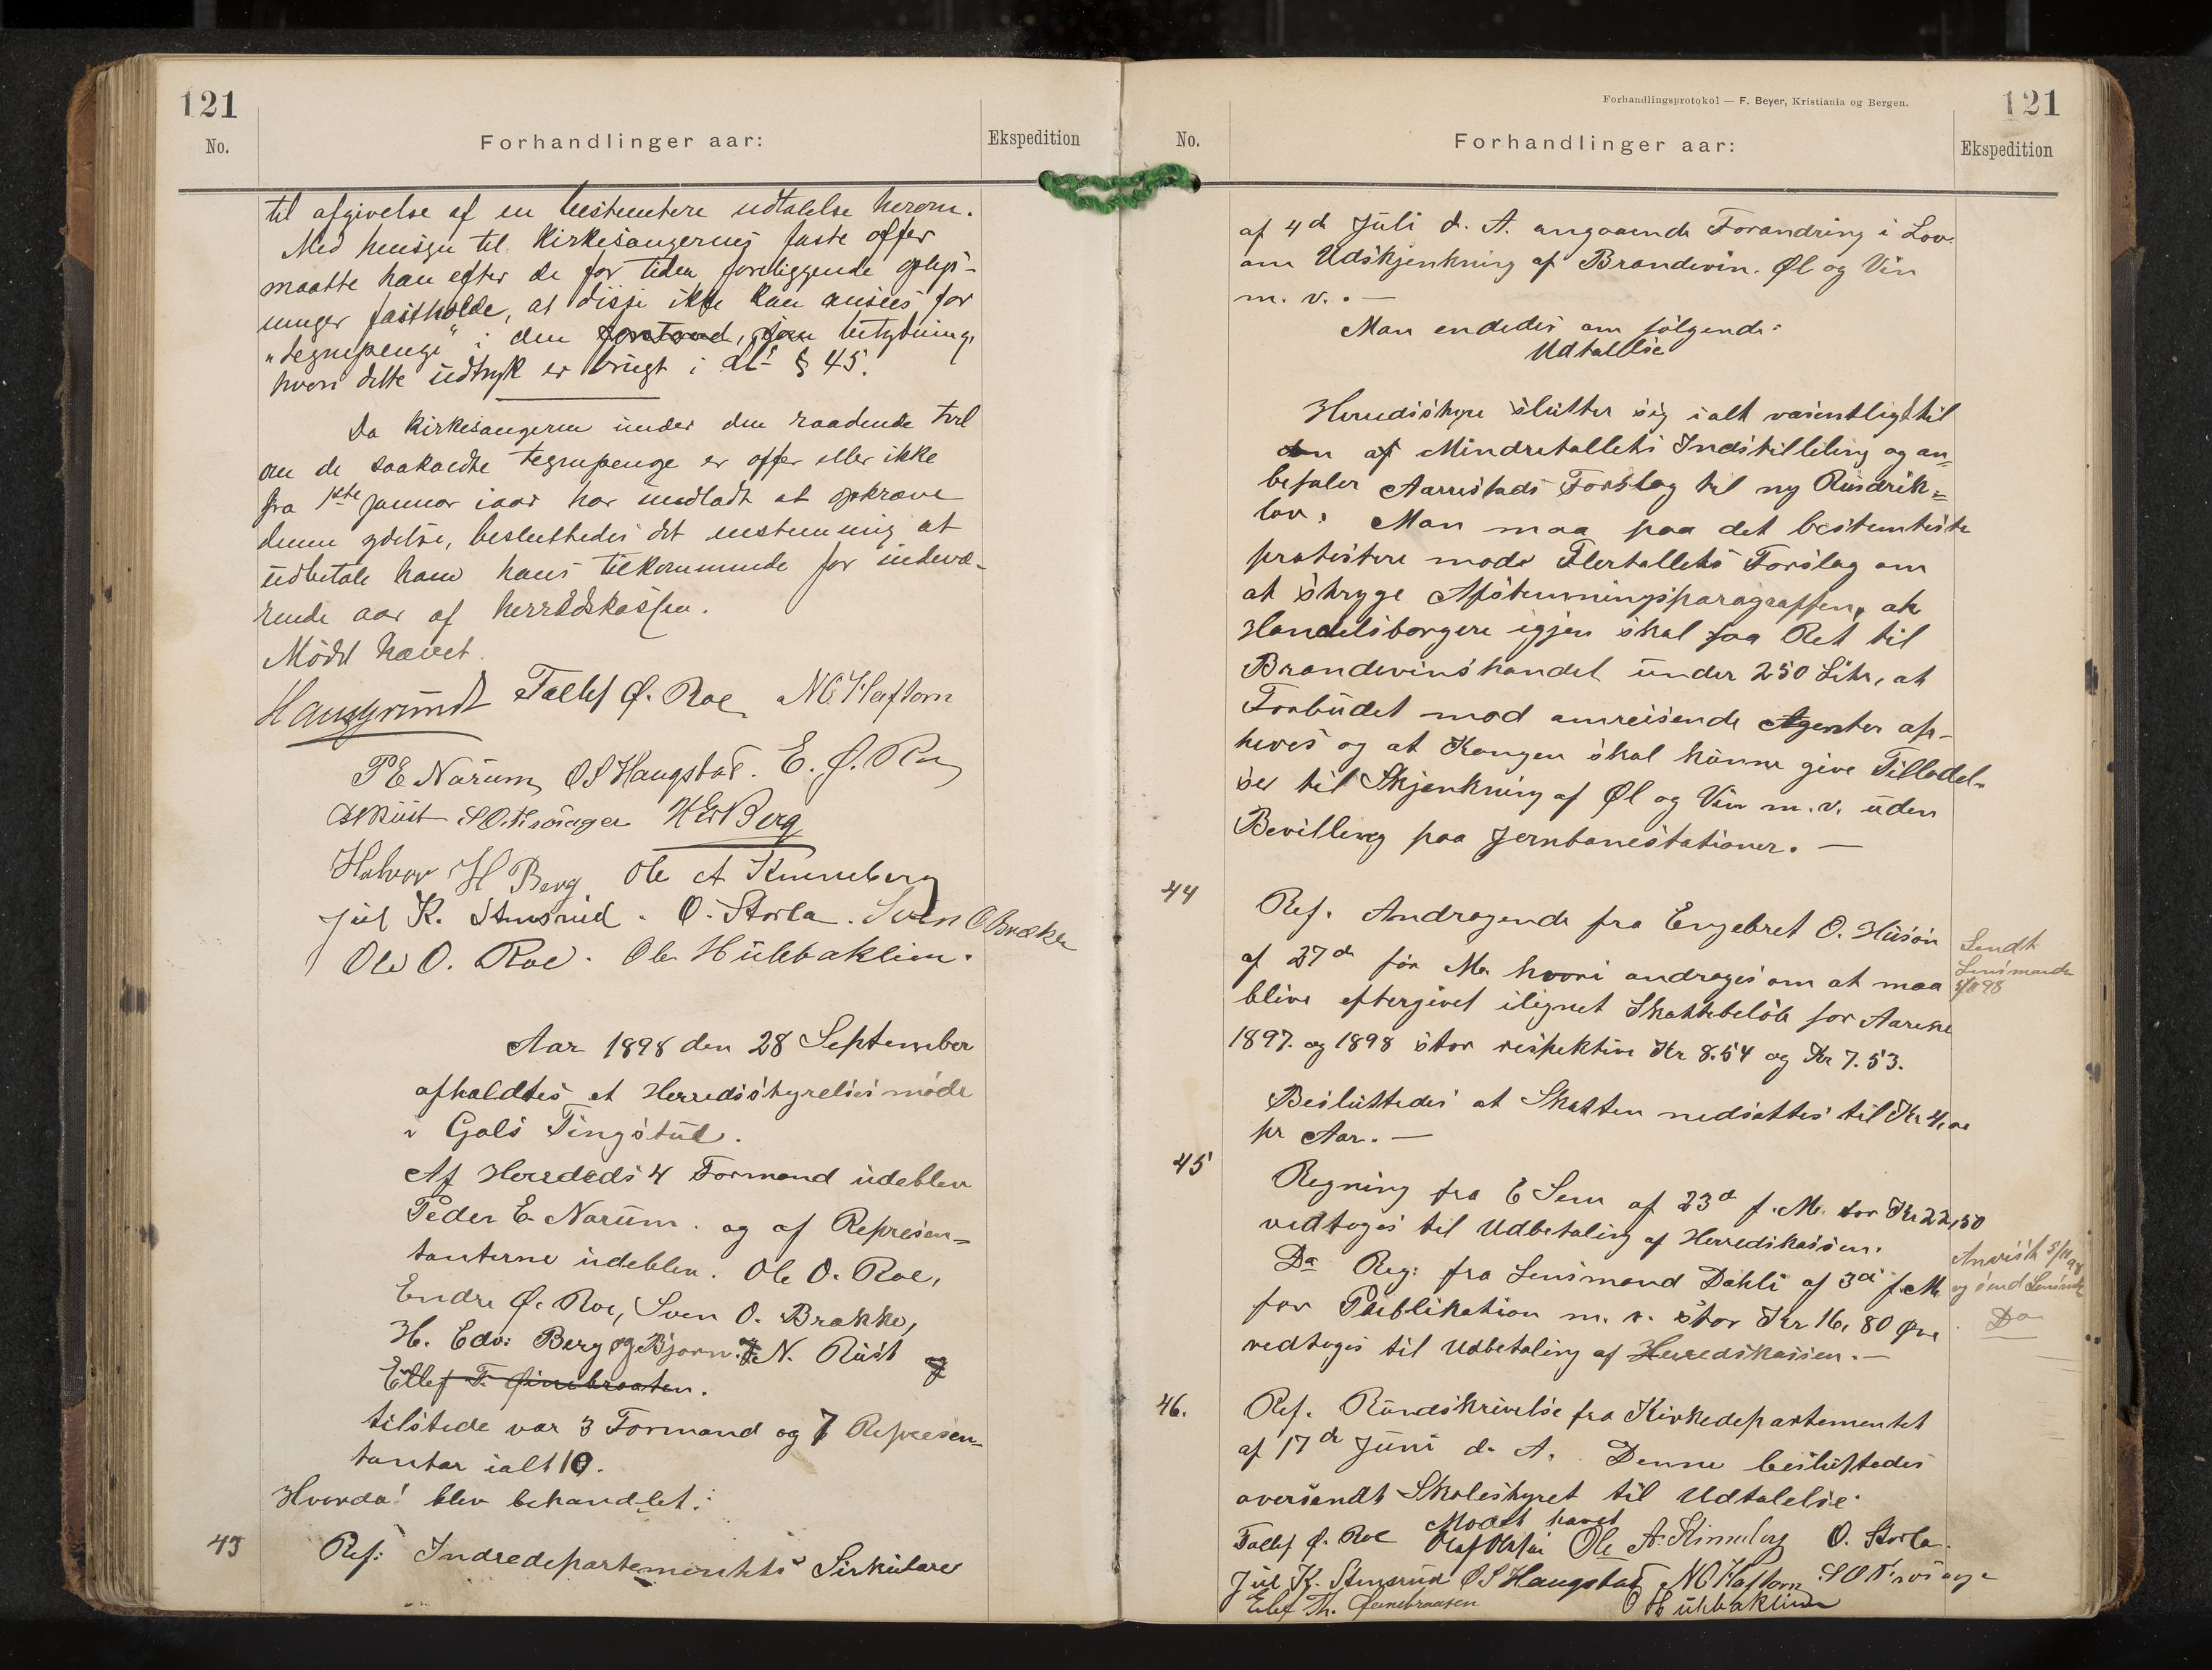 121
No.
Forhandlinger aar:
Ekspedition
til afgivelse af en bestemtere udtalelse herom.
Med hensyn til kirkesangernes faste offer
maatte han efter de for tiden foreliggende oplys-
ninger fastholde, at disse ikke kan ansees for
"tegnepenge" i den forstand, som betydning,
hvori dette udtryk er brugt i § 45.
Da kirkesangeren under den raadende tvil
om de saakaldte tegnepenge er offer eller ikke
fra 1ste januar iaar har undladt at opkræve
denne ydelse, besluttedes det enstemmig at
udbetale ham hans tilkommende for indevæ-
rende aar af herredskassen.
Mødet hævet.
Haugrundt Tollef Ø. Roe N O Haftorn
P E Narum O S Haugstad. E. Ø. Roe
Rust S O Trøiager H Ed Berg
Halvor H Berg Ole A Kinneberg
Jul K. Stensrud. O. Storla. Sven O Brække
Ole O. Roe. Ole Hulbaklien.
Aar 1898 den 28 September
afholdtes et Herredsstyrelsesmøde
i Gols Tingstue.
Af Herredets 4 Formænd udeblev
Peder E Narum. og af Represen-
tanterne udeblev. Ole O. Roe,
Endre Ø. Roe, Sven O. Brække,
H. Edv: Berg og Bjørn. N. Rust og
Ellef T. Øinebraaten.
tilstede var 3 Formænd og 7 Represen-
tanter ialt 10.
Hvorda! blev behandlet:
43
Ref: Indredepartementets Sirkulære
Forhandlingsprotokol — F. Beyer, Kristiania og Bergen.
121
No.
Forhandlinger aar:
Ekspedition
af 4de Juli d. A. angaaende Forandring i Lov
om Udskjenkning af Brændevin. Øl og Vin
m. v. . —
Man enedes om følgende:
Udtalelse
Herredsstyre slutter sig i alt væsentligt til
den af Mindretallets Indstilleling og an-
befaler Aarrestads Forslag til ny Rusdrik-
lov. Man maa paa det bestemteste
protestere mode Flertallets Forslag om
at stryge Afstemningsparagraffen, at
Handelsborgere igjen skal faa Ret til
Brændevinshandel under 250 Liter, at
Forbudet mod omreisende Agenter op-
heves og at Kongen skal kunne give Tilladel-
ser til Skjenkning af Øl og Vin m. v. uden
Bevilling paa Jernbanestationer. —
44
Ref. Andragende fra Engebret O. Huson
af 27de for M. hvori andrages om at maa
blive eftergivet ilignet Skattebeløb for Aarene
1897. og 1898 stor respektive Kr 8.54 og Kr 7.53.
Sendt
Lensmanden
98
Besluttedes at Skatten nedsattes til Kr 4,00
pr Aar. —
45
Regning fra E Sem af 23de f. M. stor Kr 22,50
vedtoges til Udbetaling af Herredskassen.
Do Reg: fra Lensmand Dahli af 3de f. M.
for Publikation m. v. stor Kr 16,80 Øre
vedtoges til Udbetaling af Herredskassen. —
Anvist 5/11 98
og send Lensm
Do
46.
Ref. Rundskrivelse fra Kirkedepartementet
af 17de Juni d. A. Denne besluttedes
oversendt Skolestyret til Udtalelse.
Mødet hævet
Tollef Ø. Roe Ole A. Kinneberg O. Storla.
Jul K. Stensrud O S Haugstad N O Haftorn S O Trøiager
Ellef Th. Øinebraaten O Hulbaklien